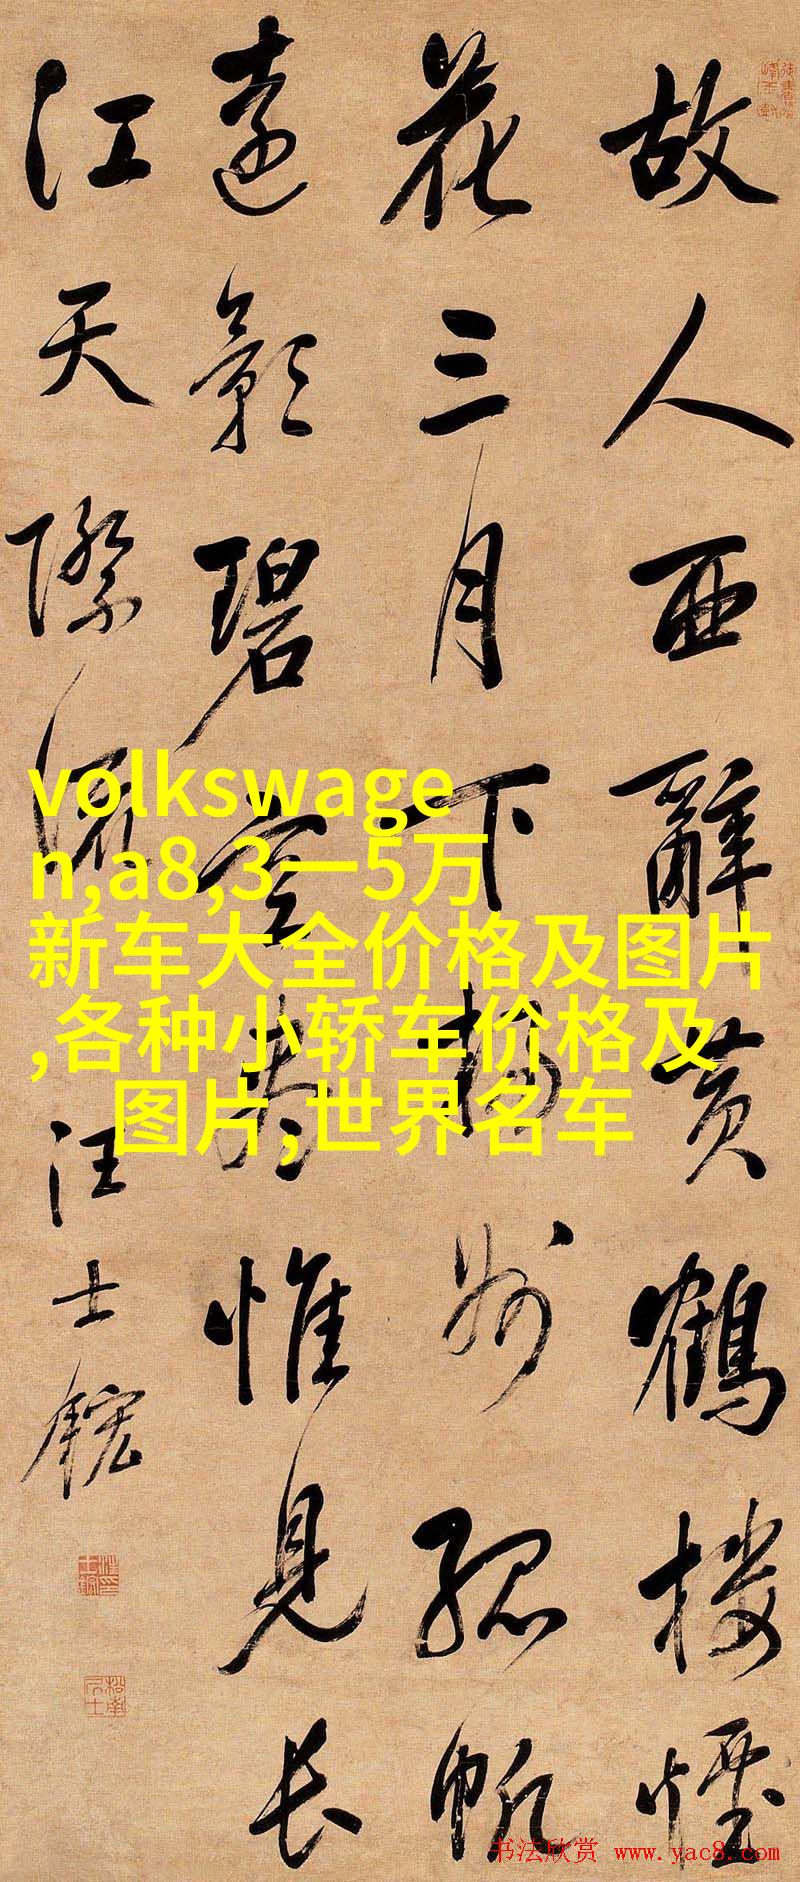 故人西辭黃鶴樓煙
花三月下揚州孤帆
遠影碧空盡惟見長
江天際流
汪士鋐
volkswage
n,a8,3一5万
新车大全价格及图片
,各种小轿车价格及
图片,世界名车
书法欣赏 www.yac8.com